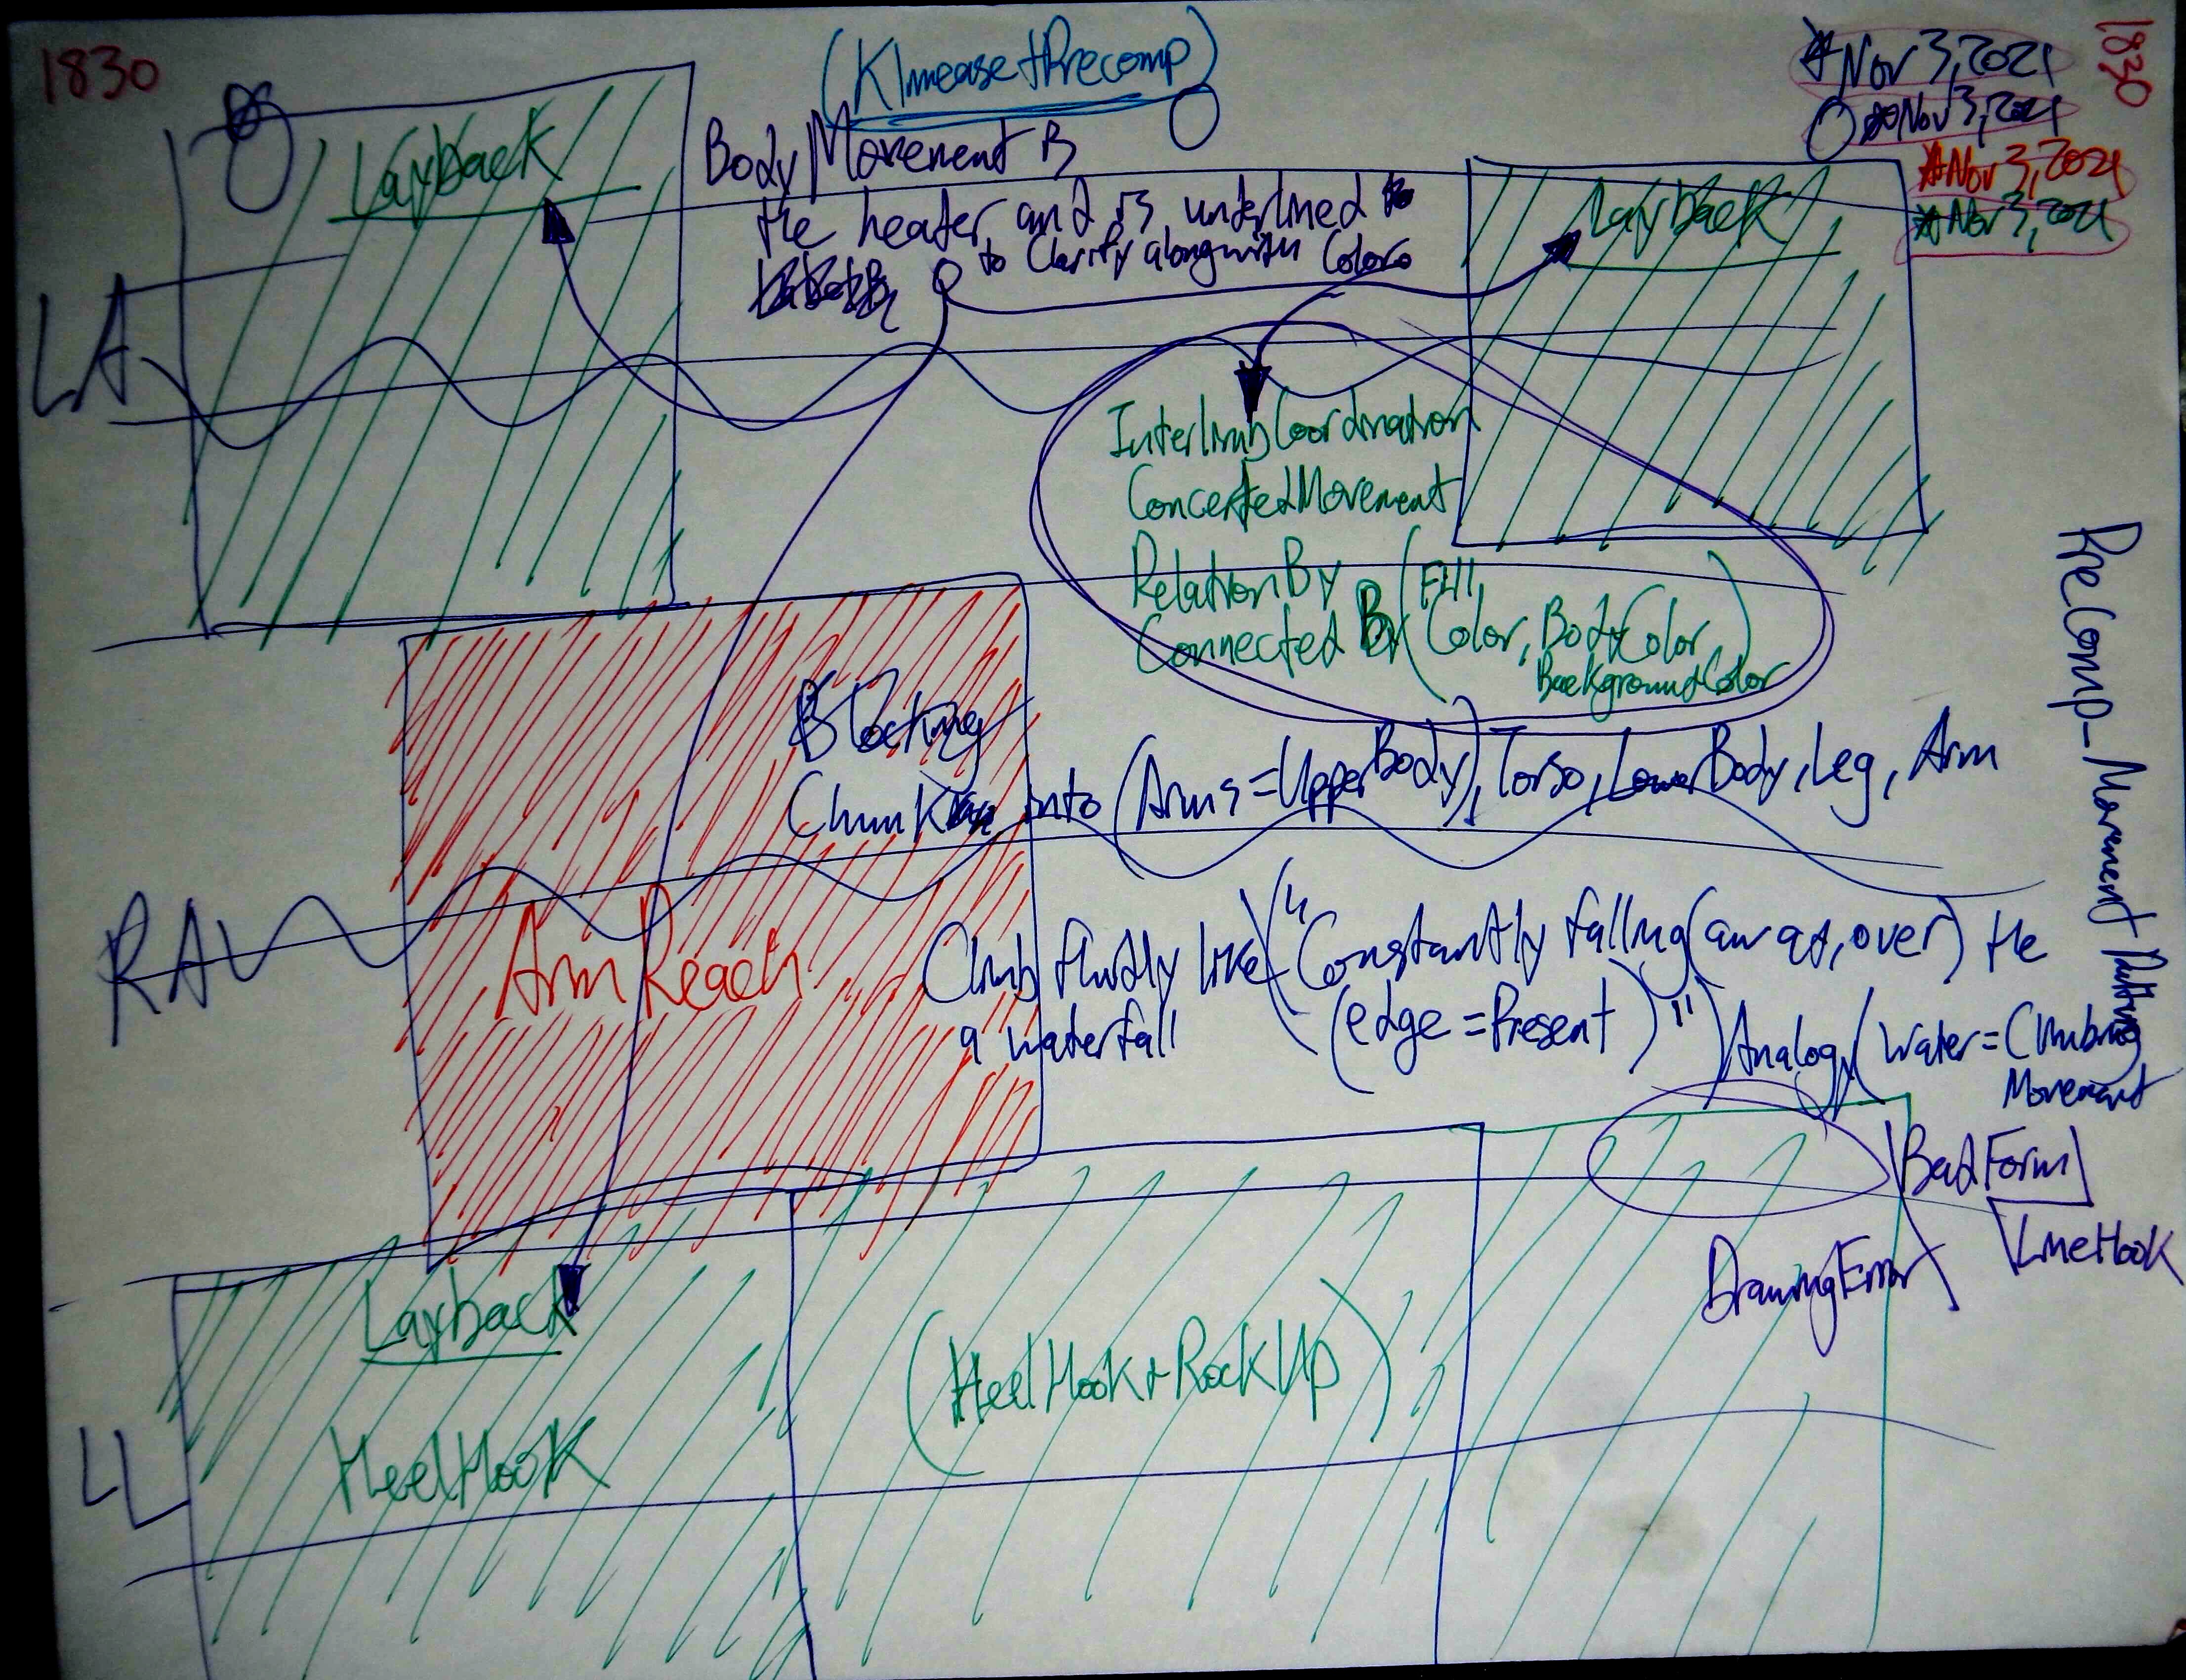 1830
(KlmeasetPrecomp)
*Nov 3, 2021
1830
*Nov 3, 2021
*Nov 3, 2021
*Nov 3, 2021
Layback
BodyMovement is
the header and is underlined
to Clarify alongwith Color
Layback
LA
InterlimbCoordination
ConcertedMovement
RelationBy
Connected By (Fill Color, BodyColor,
BackgroundColor)
PreComp_Movement Putting
Blocking
Chunk into (Arms=UpperBody), Torso, LowerBody, Leg, Arm
RA
ArmReach
Climb fluidly like
a waterfall
("Constantly falling (away, over) the
(edge=Present)")
Analogy (Water=Climbing
Movement
BadForm
LineHook
DrawingError
Layback
HeelHook
(HeelHook+RockUp)
LL